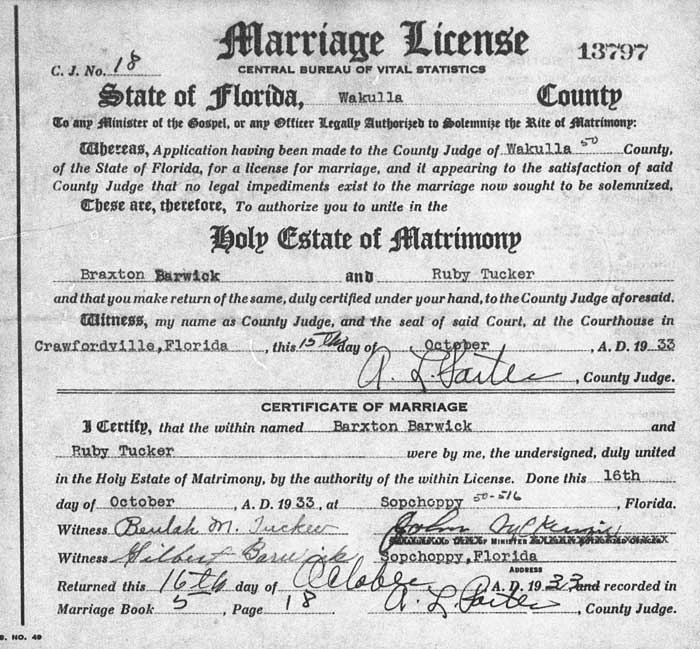 Marriage License 13797
C. J. No. 18 CENTRAL BUREAU OF VITAL STATISTICS
State of Florida, Wakulla County
To any Minister of the Gospel, or any Officer Legally Authorized to Solemnize the Rite of Matrimony:
Whereas, Application having been made to the County Judge of Wakulla 50 County,
of the State of Florida, for a license for marriage, and it appearing to the satisfaction of said
County Judge that no legal impediments exist to the marriage now sought to be solemnized,
These are, therefore, To authorize you to unite in the
Holy Estate of Matrimony
Braxton Barwick and Ruby Tucker
and that you make return of the same, duly certified under your hand, to the County Judge aforesaid.
Witness, my name as County Judge, and the seal of said Court, at the Courthouse in
Crawfordville,Florida , this 15th day of October , A. D. 19 33
A. L. Porter , County Judge.
CERTIFICATE OF MARRIAGE
I Certify, that the within named Barxton Barwick and
Ruby Tucker were by me, the undersigned, duly united
in the Holy Estate of Matrimony, by the authority of the within License. Done this 16th
day of October , A. D. 19 33, at Sopchoppy 50-516 , Florida.
Witness Beulah M. Tucker John McKenzie
MINISTER
Witness Gilbert Barwick Sopchoppy,Florida
ADDRESS
Returned this 16th day of October A. D. 19 33 and recorded in
Marriage Book 5 , Page 18 A. L. Porter , County Judge.
S. NO. 49